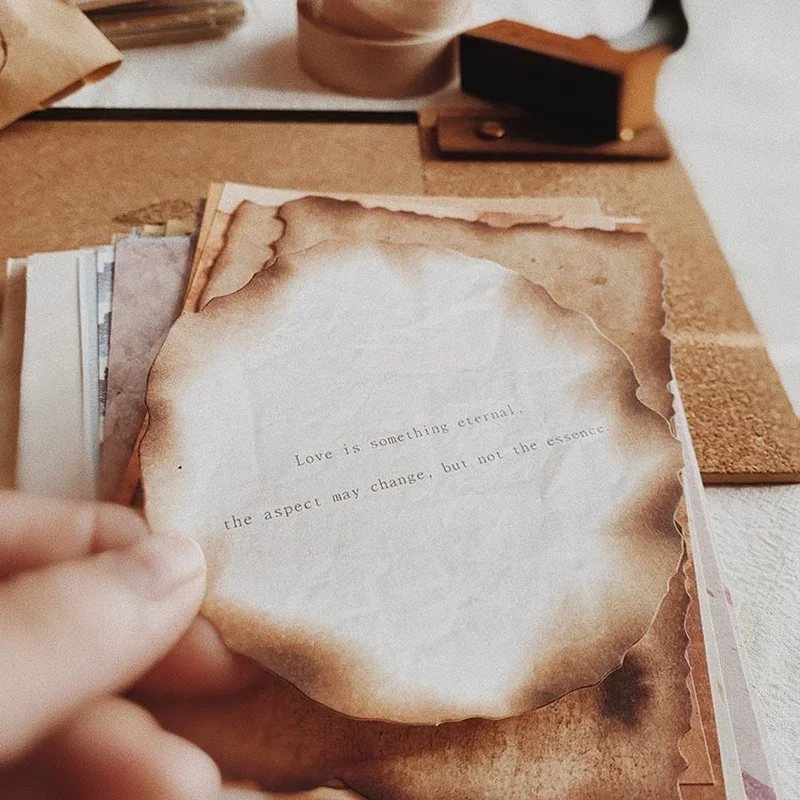 Love is something eternal,
the aspect may change, but not the essence.